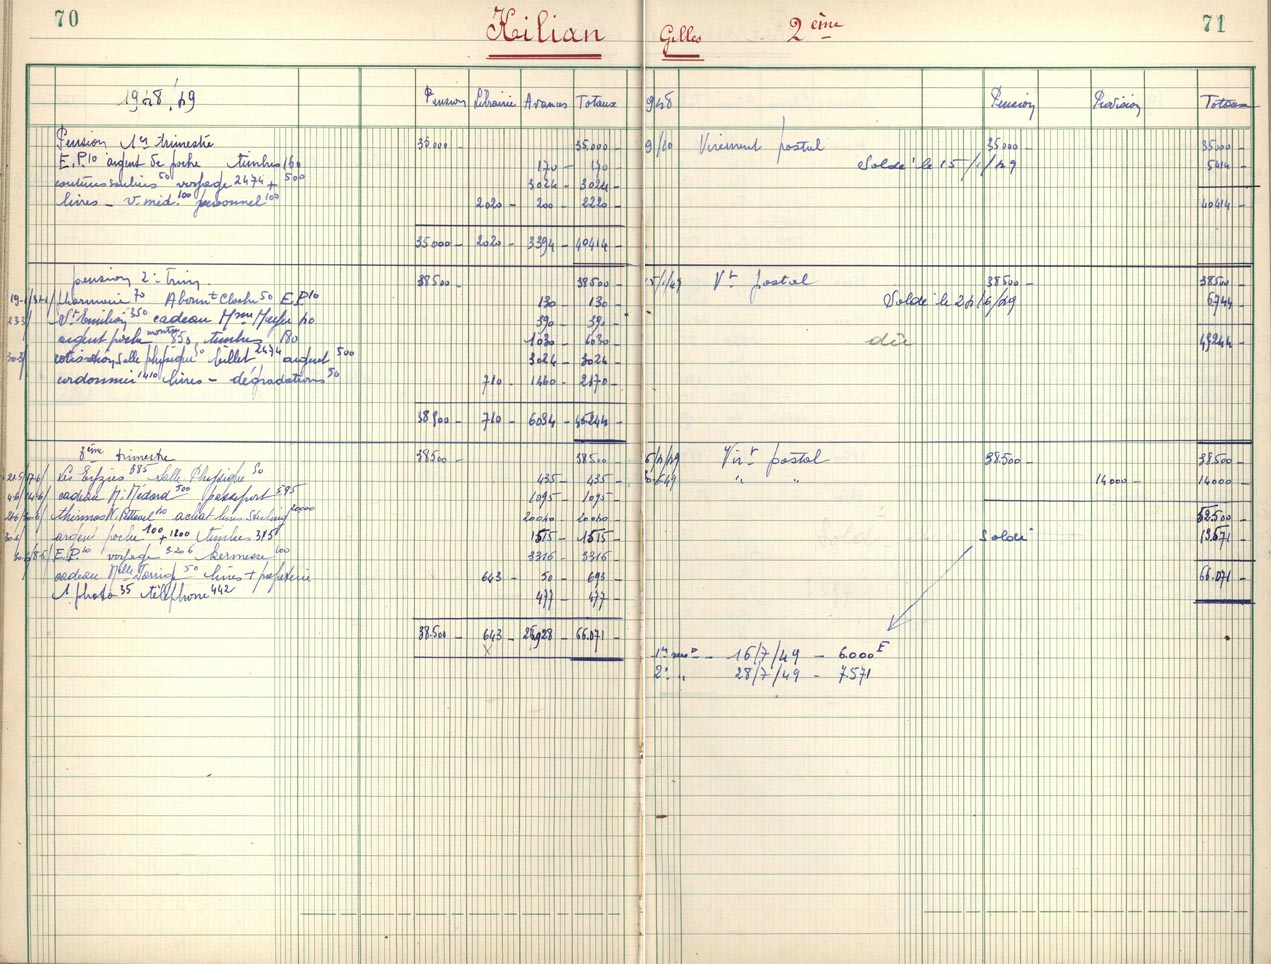 70
Kilian Gilles 2ème
71
1948/49 Pension Librairie Avances Totaux
Pension 1er trimestre 35.000 - 35.000 -
E.P.10 argent de poche timbres 160 170 - 170 -
souliers 50 voyage 2474 + 500 3024 - 3024 -
livres - v. méd. 100 personnel 100 2020 - 200 - 2220 -
35000 - 2020 - 3394 - 40414 -
pension 2e Trim. 38500 - 38500 -
Pharmacie 70 Abonnt 50 E.P.10 130 - 130 -
St Emilion 350 cadeau Mme 40 390 - 390 -
argent poche 850 timbres 180 1030 - 1030 -
cotisation Salle physique 50 billet 2474 argent 500 3024 - 3024 -
cordonnier 1410 livres - dégradations 50 710 - 1460 - 2170 -
38500 - 710 - 6034 - 45244 -
3ème trimestre 38500 - 38500 -
385 Salle Physique 50 435 - 435 -
cadeau M. Médard 500 passeport 595 1095 - 1095 -
thermos 40 achat livres Sterling 20000 20040 - 20040 -
argent poche 100 + 1200 timbres 315 1515 - 1515 -
E.P.10 voyage 3206 kermesse 100 3316 - 3316 -
cadeau Melle 50 livres + papeterie 643 - 50 - 693 -
1 photo 35 téléphone 442 477 - 477 -
38.500 - 643 - 26928 - 66.071 -
948 Pension Provision Totaux
9/10 Virement postal 35000 - 35000 -
Soldé le 15/1/49 5414 -
40414 -
15/1/49 Vt postal 38500 - 38500 -
Soldé le 24/6/49 6744 -
dû 45244 -
Virt postal 38500 - 38.500 -
" " 14000 - 14000 -
52500 -
Soldé 13.571 -
66.071 -
1er - 16/7/49 - 6.000 F
2e " 28/7/49 - 7.571